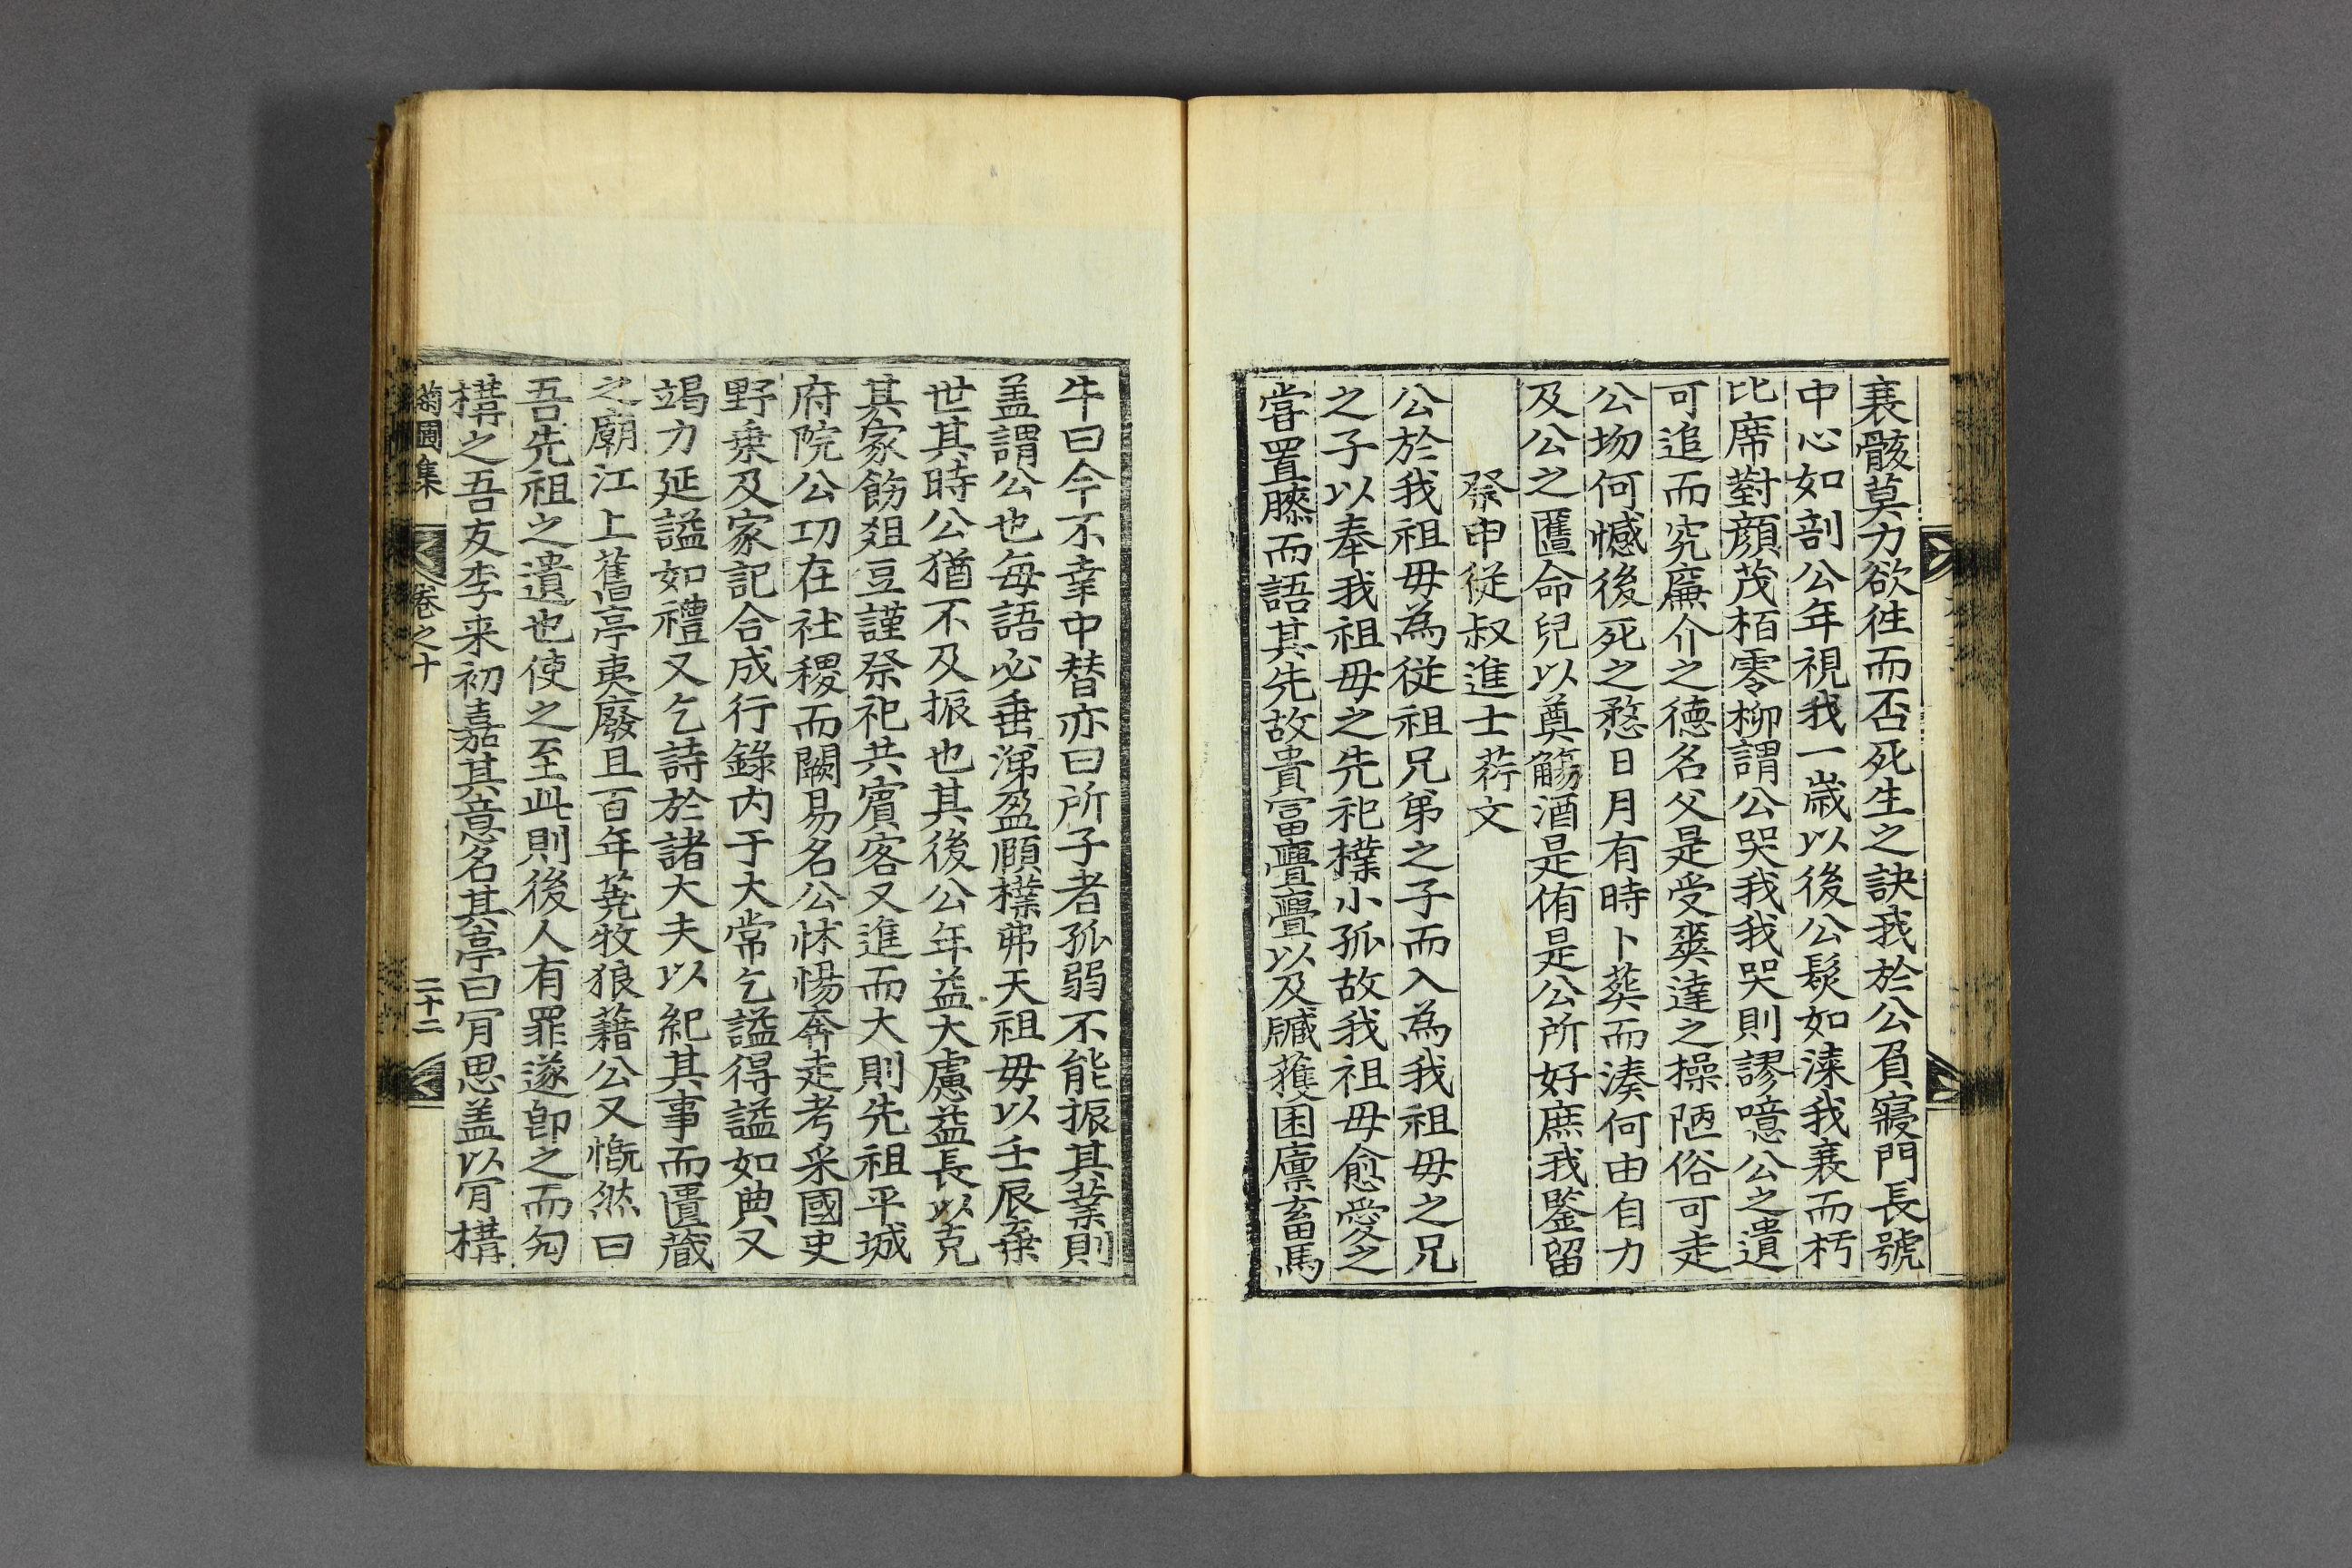 衰骸莫力欲徃而否死生之訣我於公負寢門長號
中心如剖公年視我一歲以後公髮如漆我衰而朽
比席對顔茂栢零柳謂公哭我我哭則謬噫公之遺
可追而究廉介之德名父是受爽達之操陋俗可走
公歾何憾後死之愁日月有時卜葬而湊何由自力
及公之匶命兒以奠觴酒是侑是公所好庶我鑒留
祭申從叔進士荇文
公於我祖母為從祖兄弟之子而入為我祖母之兄
之子以奉我祖母之先祀㷣小孤故我祖母愈愛之
甞置膝而語其先故貴富亹亹以及臧獲困廪畜馬
牛曰今不幸中替亦曰所子者孤弱不能振其業則
盖謂公也每語必垂涕盈頤㷣弗天祖母以壬辰棄
世其時公猶不及振也其後公年益大慮益長以克
其家飭俎豆謹祭祀共賓客又進而大則先祖平城
府院公功在社稷而闕易名公怵惕奔走考采國史
野乗及家記合成行錄内于大常乞謚得謚如典又
竭力延謚如禮又乞詩於諸大夫以紀其事而匱藏
之廟江上舊亭夷廢且百年蕘牧狼藉公又慨然曰
吾先祖之遺也使之至此則後人有罪遂卽之而匃
構之吾友李来初嘉其意名其亭曰肯思盖以肯構
菊圃集 卷之十 二十二